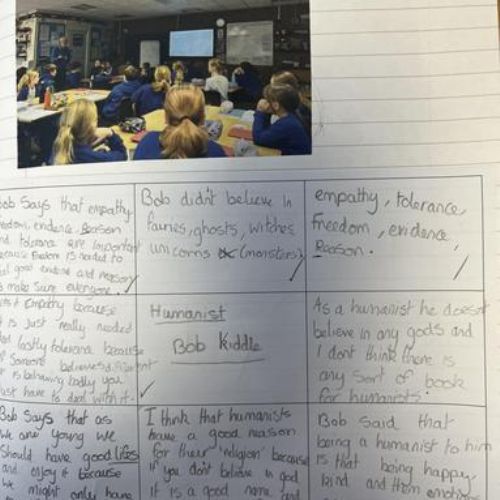 Bob Says that empathy
freedom, evidence, Reason
and tolerance are important
because freedom is needed to
feel good evidence and reason
to make Sure everyone.
empathy because
it is just really needed
lastly tolerance because
if someone believes different
is behaving badly you
Just have to deal with it.
Bob didn't believe in
fairies, ghosts, witches
unicorns or (monsters)
empathy, tolerance,
freedom, evidence,
Reason.
Humanist
Bob Kiddle
As a humanist he doesn't
believe in any gods and
I don't think there is
any sort of book
for humanists.
Bob Says that as
we are young we
Should have good lifes
and enjoy it because
we might only have
I think that humanists
have a good reason
for their 'religion' because
if you don't believe in god
it is a good name and
Bob said that
being a humanist to him
is that being happy
kind and them